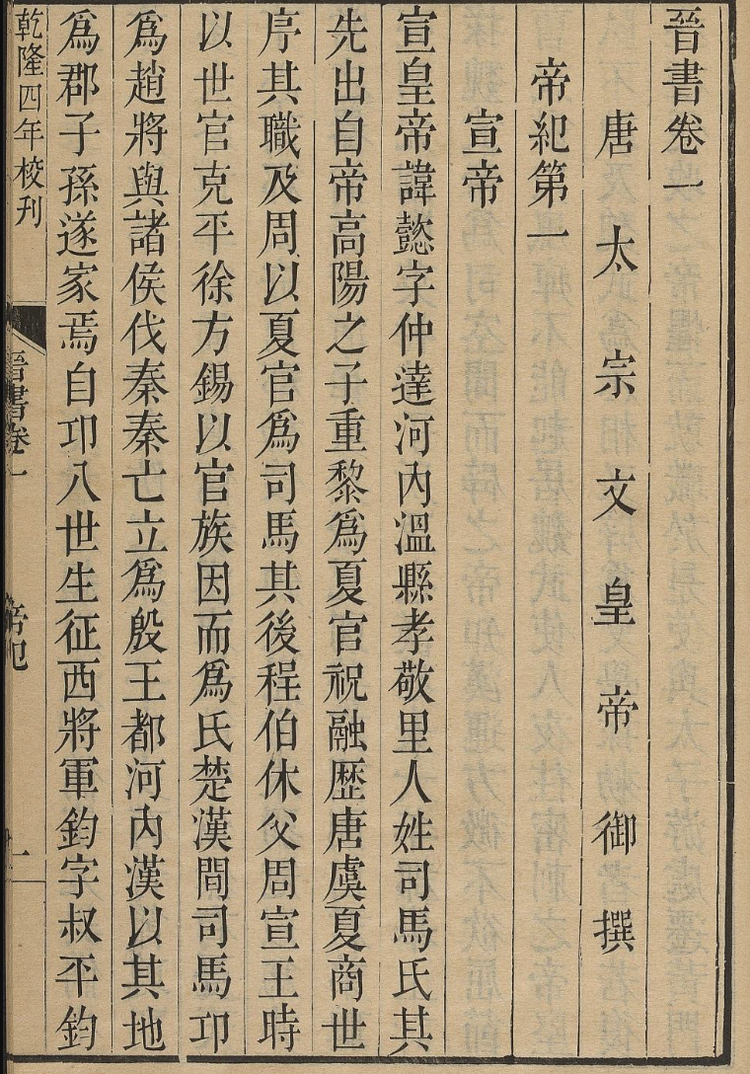 晉書卷一
唐太宗文皇帝御撰
帝紀第一
宣帝
宣皇帝諱懿字仲達河內溫縣孝敬里人姓司馬氏其
先出自帝高陽之子重黎爲夏官祝融歷唐虞夏商世
序其職及周以夏官爲司馬其後程伯休父周宣王時
以世官克平徐方錫以官族因而爲氏楚漢間司馬卬
爲趙將與諸侯伐秦秦亡立爲殷王都河內漢以其地
爲郡子孫遂家焉自卬八世生征西將軍鈞字叔平鈞
乾隆四年校刊
晉書卷一
帝紀
一